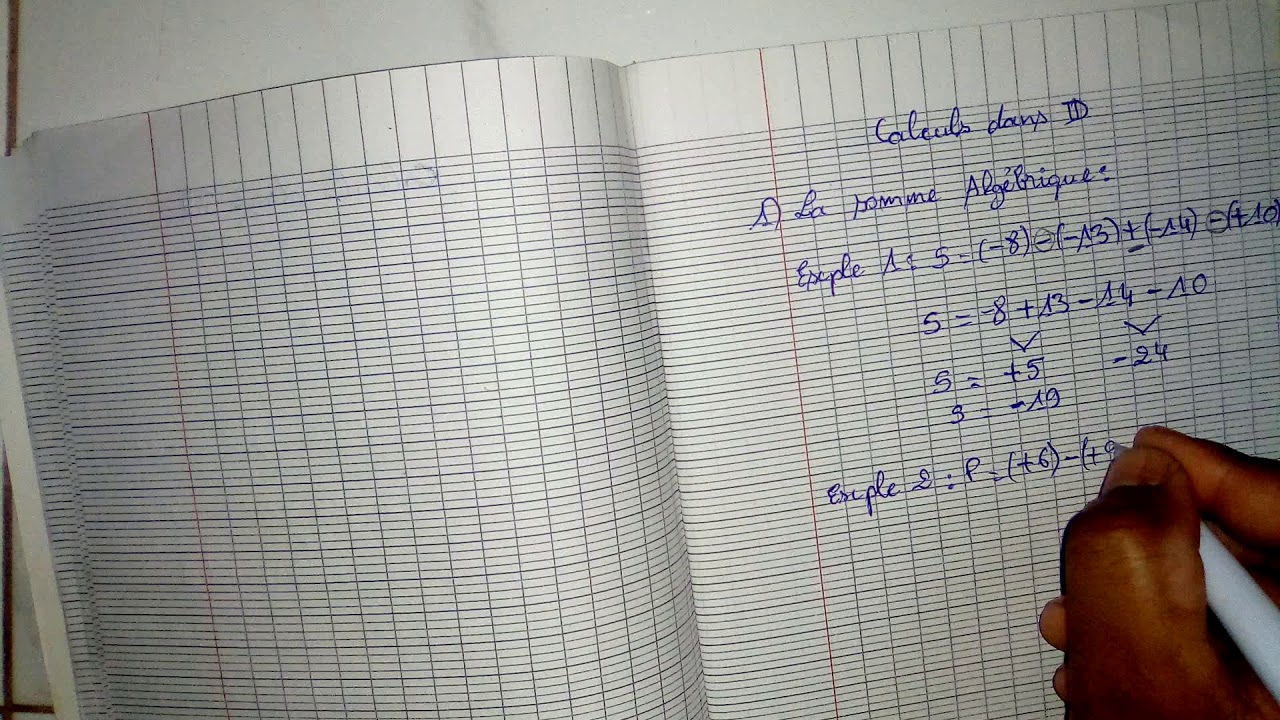 Calculs dans ID
1) La somme Algébrique:
Exple 1: S = (-8) - (-13) + (-14) - (+10)
S = -8 + 13 - 14 - 10
S = +5 -24
S = -19
Exple 2: P = (+6) - (+9